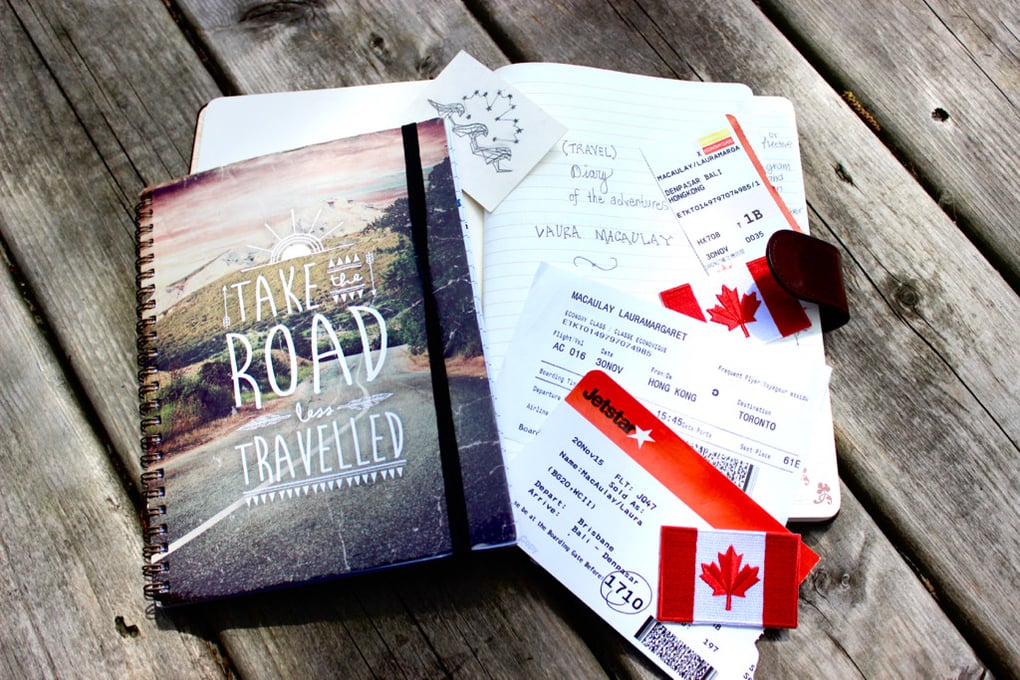 TAKE the
ROAD
less
TRAVELLED
(TRAVEL)
Diary
of the adventures
VAURA MACAULAY
MACAULAY/LAURAMARGA
DENPASAR BALI
HONGKONG
ETKT0149797074985/1
HX708 Y 1B
30NOV 0035
or
MACAULAY LAURAMARGARET
ECONOMY CLASS / CLASSE ECONOMIQUE
ETKT0149797074985
Flight/Vol Date From/De Frequent Flyer/Voyageur
AC 016 30NOV HONG KONG
Destination
TORONTO
Boarding
Departure 15:45
Seat Place 61E
Airline
Jetstar
20Nov15 FLT: JQ47
Sold As:
Name:MacAulay/Laura
(BG20:HCII)
Depart: Brisbane
Arrive: Bali - Denpasar
be at the Boarding Gate Before
1710
197